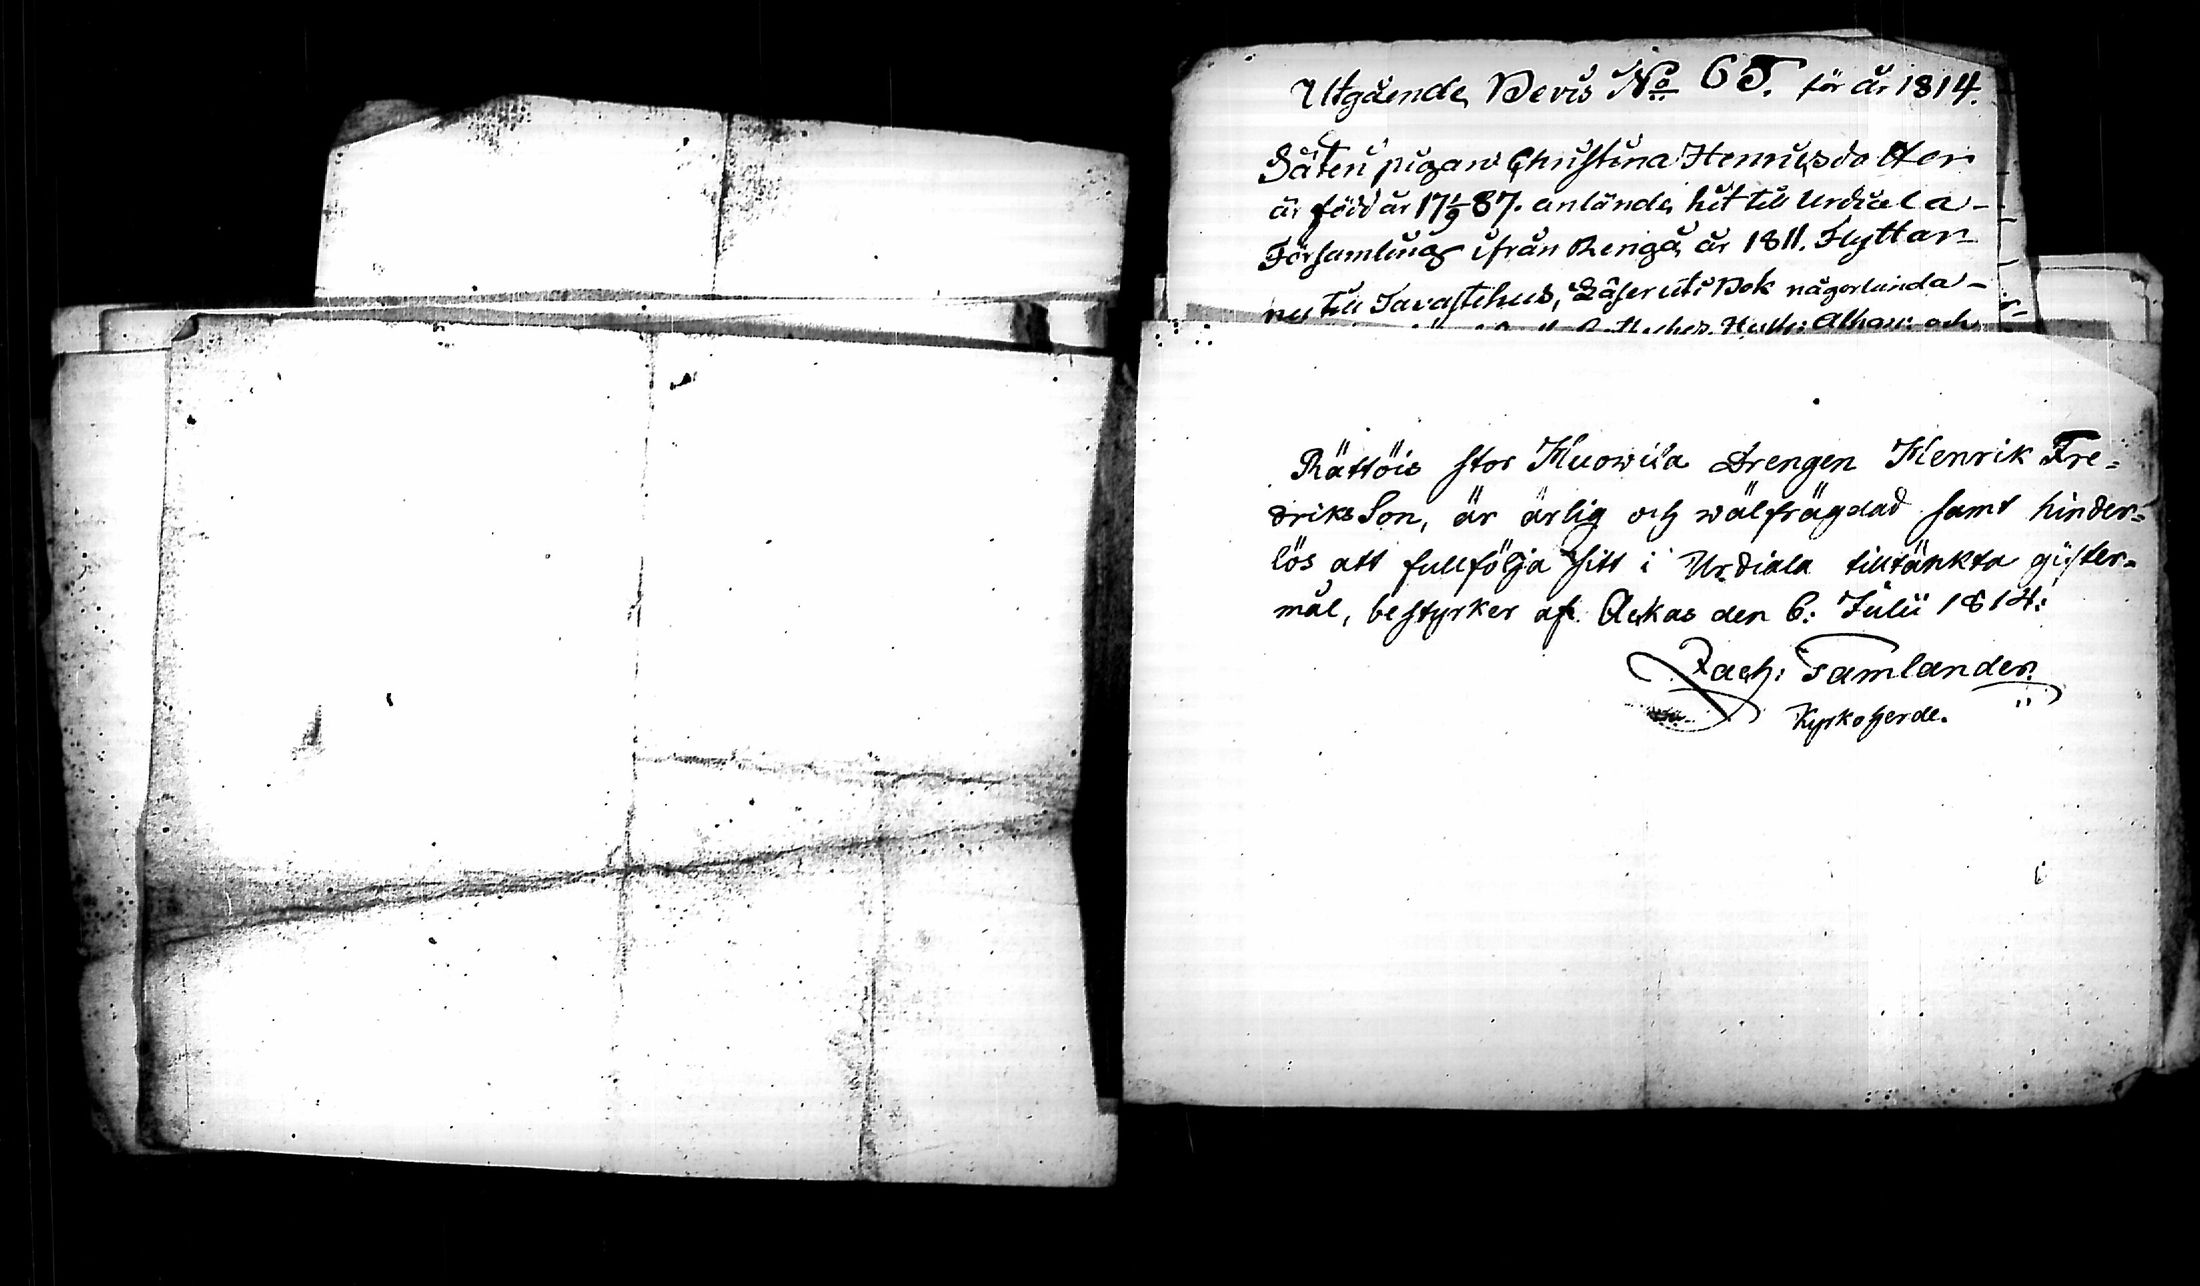 Utgående Bevis No 65. för år 1814.
Säteri pigan Christina Henricsdotter
är född år 17 1/9 87. anlände hit till Urdiala
Församling ifrån Rengå år 1811. Flyttar
nu till Tavastehus, Läser uti Bok någorlunda
Athan: och
Rättöis stor Kuowila Drengen Henrik Fre=
driksSon, är ärlig och wälfrägdad samt hinder=
lös att fullfölja sitt i Urdiala tilltänkta gifter=
mål, bestyrker af Ackas den 6: Julii 1814:
Zach: Tamlander
Kyrkoherde.